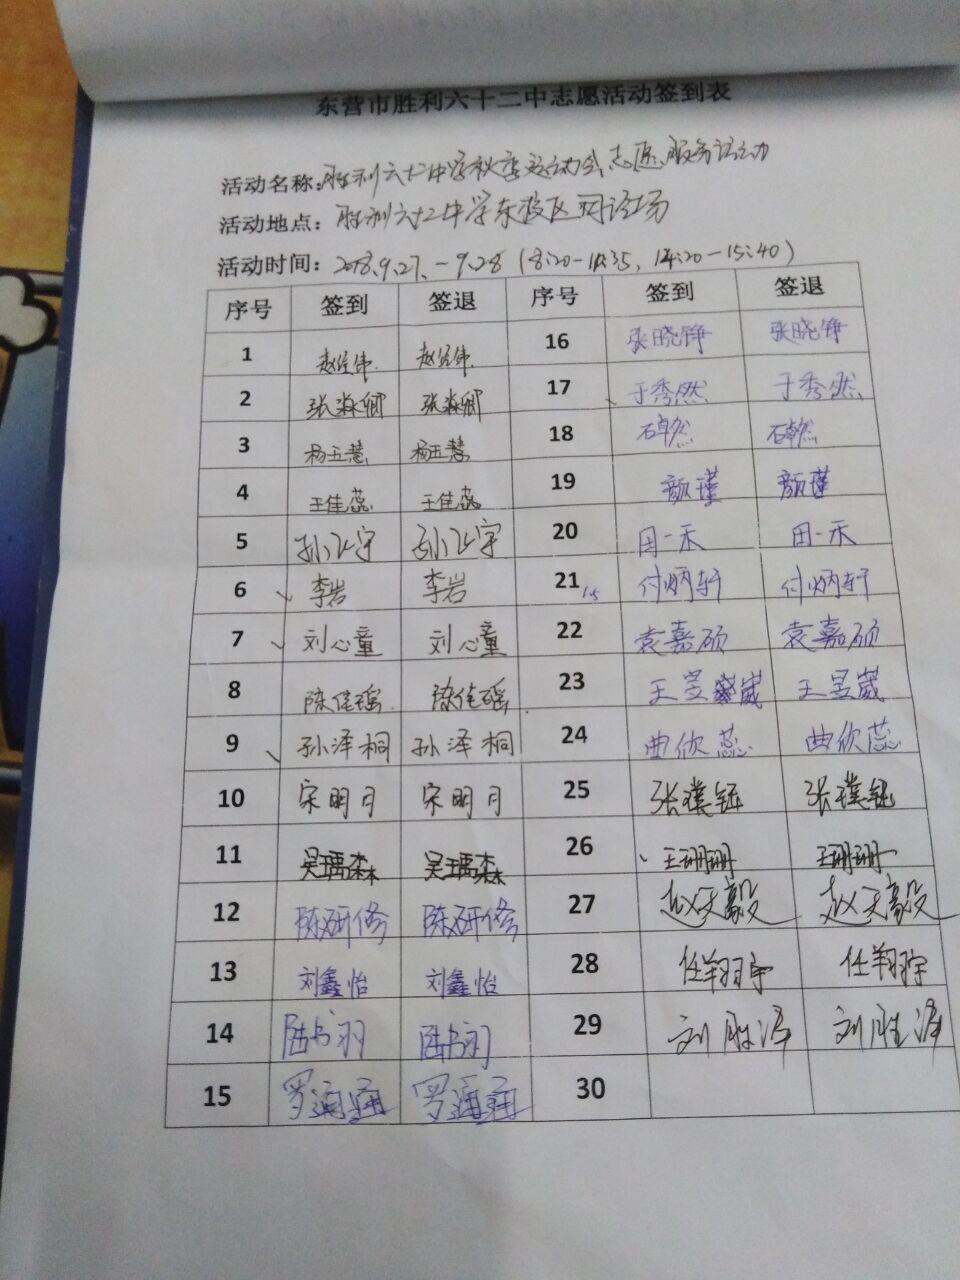 东营市胜利六十二中志愿活动签到表
活动名称:胜利六十二中学秋季运动会志愿服务活动
活动地点:胜利六十二中学东校区网球场
活动时间:2018.9.27.-9.28 (8:20-11:35, 14:20-15:40)
序号 签到 签退 序号 签到 签退
1 16 张晓铮 张晓铮
2 张淼卿 张淼卿 17 于秀然 于秀然
3 杨玉慧 杨玉慧 18
4 王佳蕊 王佳蕊 19 颜瑾 颜瑾
5 孙飞宇 孙飞宇 20 田一禾 田一禾
6 李岩 李岩 21 付炳轩 付炳轩
7 刘心童 刘心童 22 袁嘉硕 袁嘉硕
8 陈佳瑶 陈佳瑶 23 王昱崴 王昱崴
9 孙泽桐 孙泽桐 24 曲欣蕊 曲欣蕊
10 宋明月 宋明月 25 张璞钰 张璞钰
11 吴瑀森 吴瑀森 26 王珊珊 王珊珊
12 陈研修 陈研修 27 赵天毅 赵天毅
13 刘鑫怡 刘鑫怡 28 任翔宇 任翔宇
14 陆书羽 陆书羽 29 刘胜泽 刘胜泽
15 30